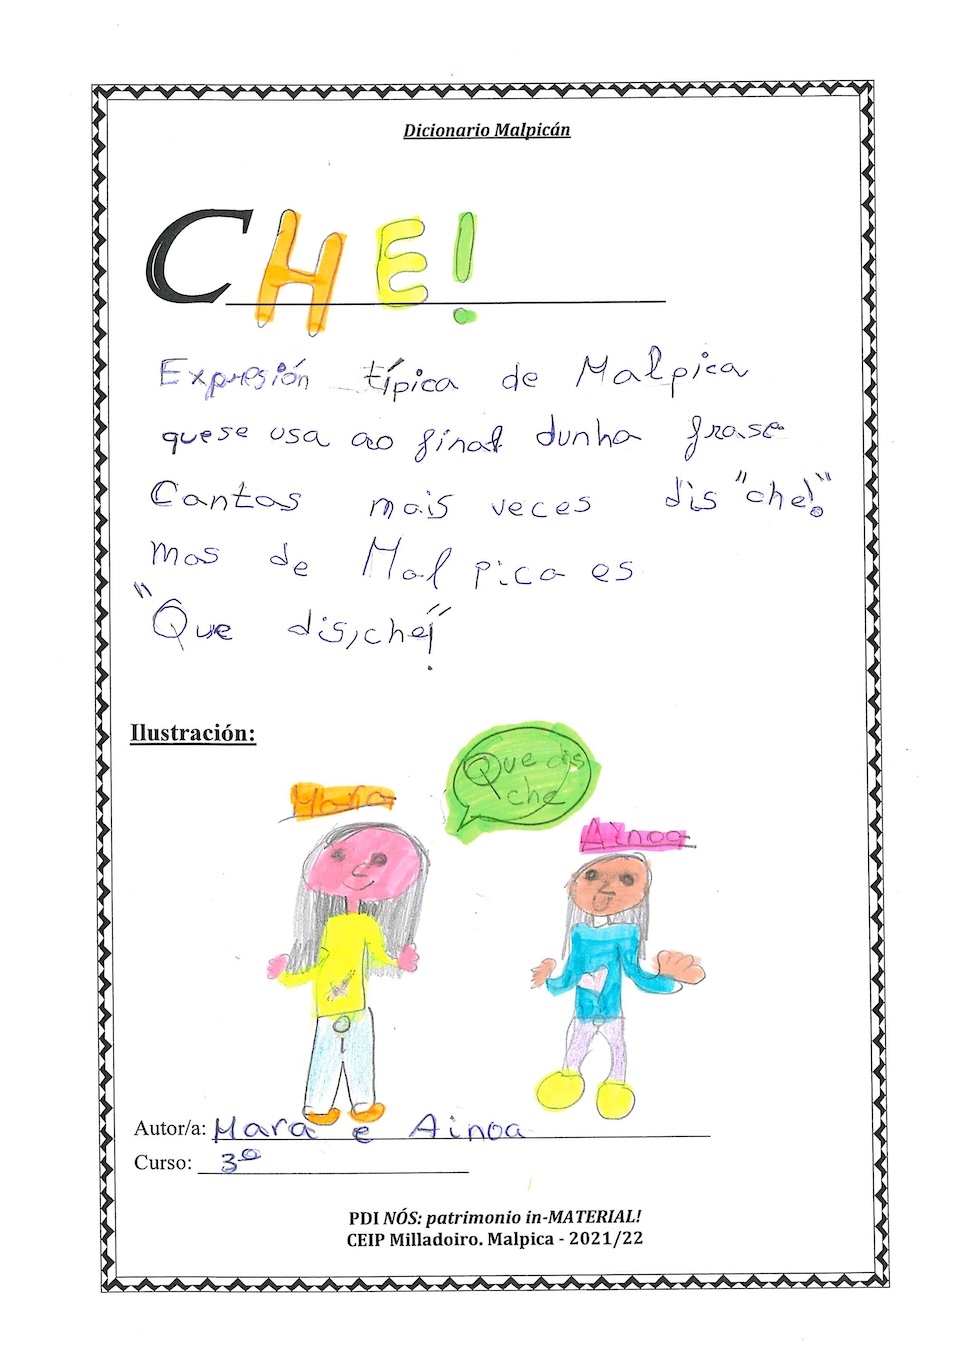 Dicionario Malpicán
CHE!
Expresión típica de Malpica
que se usa ao final dunha frase
Cantas mais veces dis "che!"
mas de Malpica es
"Que dis, che!"
Ilustración:
Que dis
che
Mara
Ainoa
Autor/a: Mara e Ainoa
Curso: 3º
PDI NÓS: patrimonio in-MATERIAL!
CEIP Milladoiro. Malpica - 2021/22